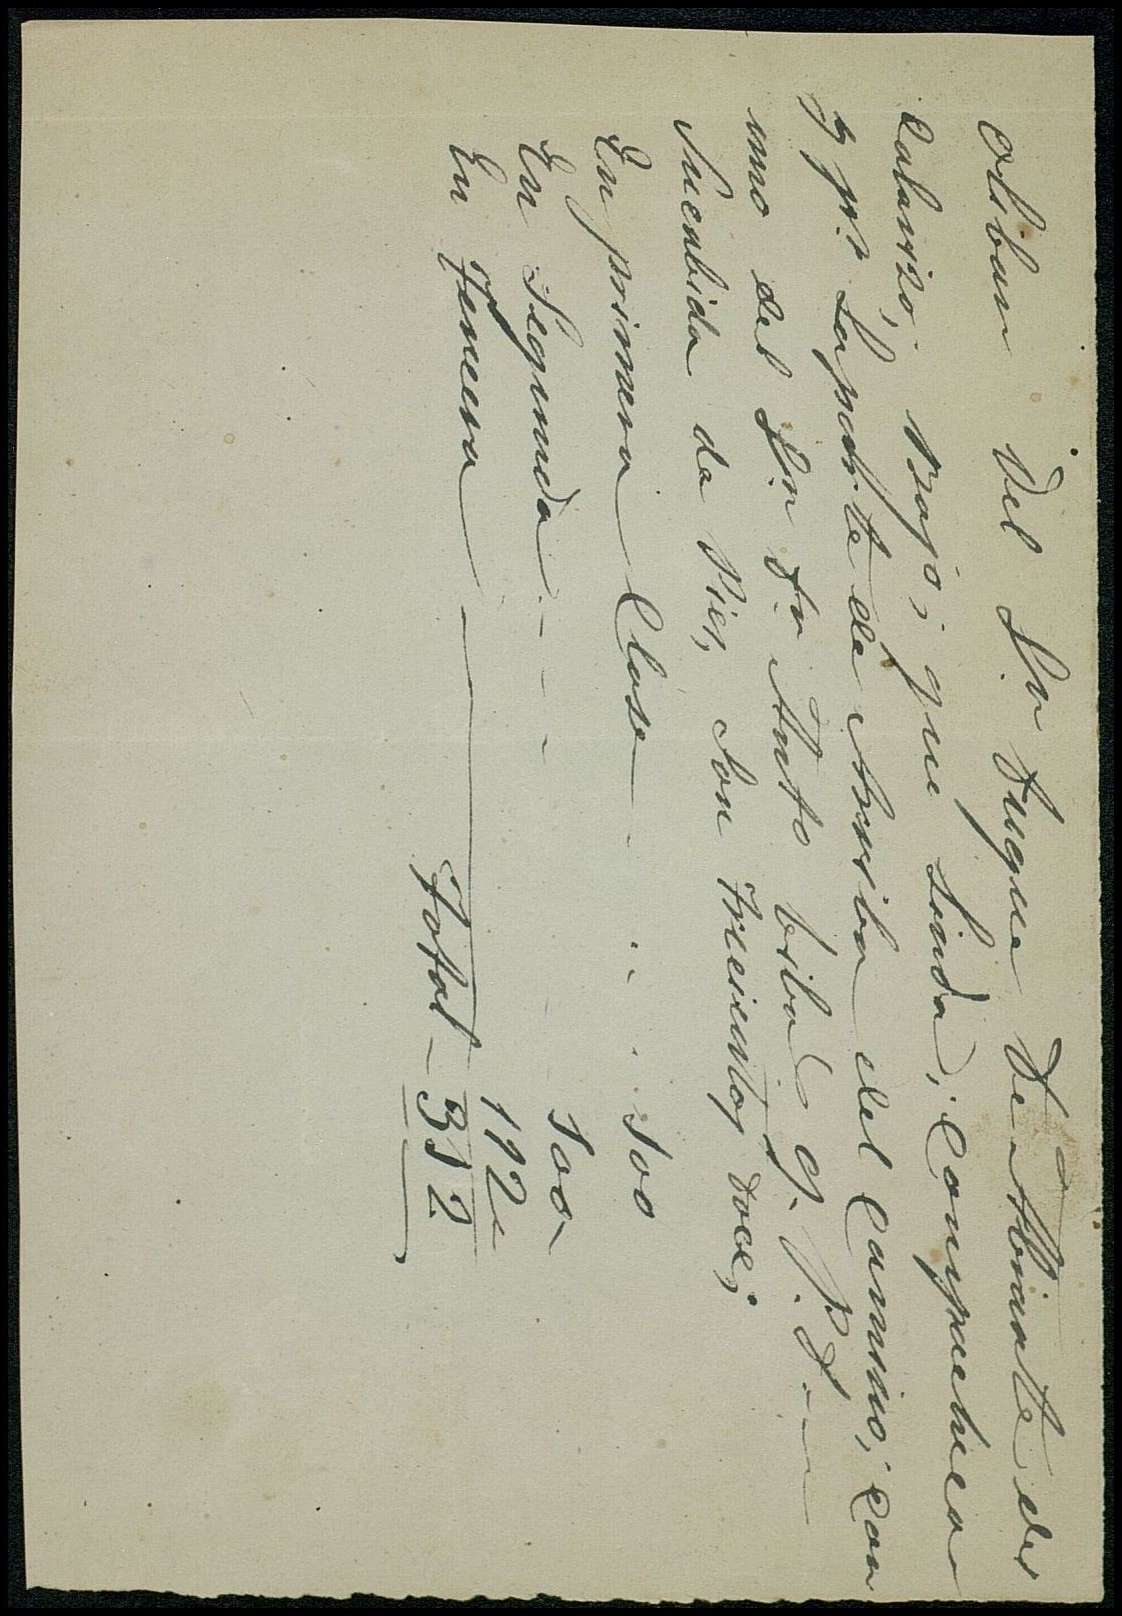 Olibar Del Sr Duque De Abrante del
Cabanizo, Bajo, que Linda, Con pueblica
y pr La parte de Arriba del Camino, Con
uno del Sr Dn Anto q. p. D.
Sucabida de Pies, Son Trecientos Doce,
En primera Clase 100
En Segunda 100
En Tercera 112
Total 312